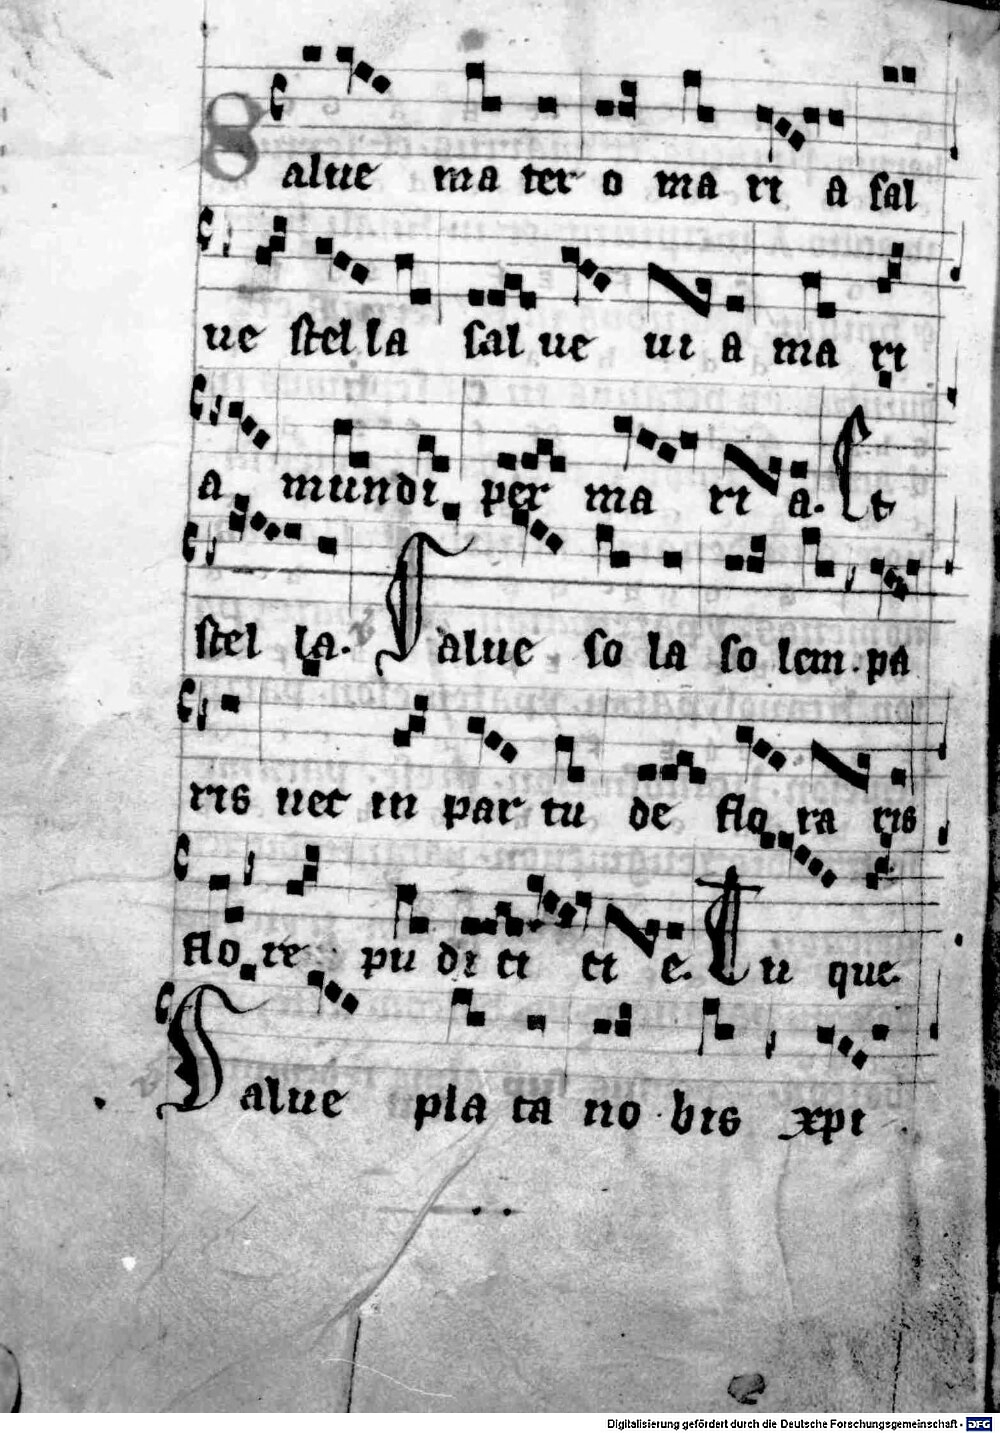 Salue ma ter o ma ri a sal
ue stel la sal ue ui a ma ri
a mundi per ma ri a. Et
stel la. Salue so la so lem. pa
ris nec in par tu de flo ra ris
flo re pu di ci ci e. Tu que
Salue pla ta no bis xpi
Digitalisierung gefördert durch die Deutsche Forschungsgemeinschaft - DFG